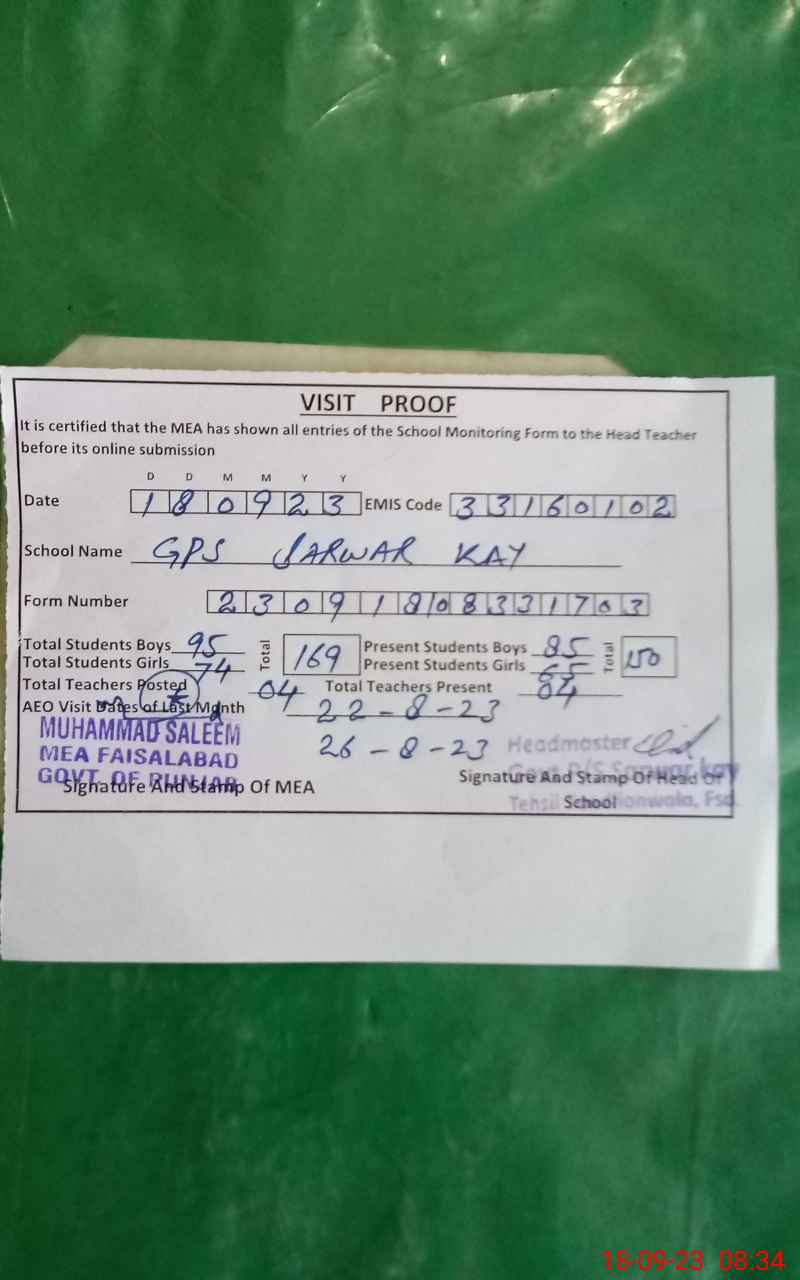 VISIT PROOF
It is certified that the MEA has shown all entries of the School Monitoring Form to the Head Teacher
before its online submission
D D M M Y Y
Date 180923 EMIS Code 33160102
School Name GPS SARWAR KAY
Form Number 23091808331703
Total Students Boys 95 Total 169 Present Students Boys 85 Total 150
Total Students Girls 74 Present Students Girls 65
Total Teachers Posted 04 Total Teachers Present 04
AEO Visit Dates of Last Month 22-8-23
26-8-23
MUHAMMAD SALEEM
MEA FAISALABAD
GOVT. OF PUNJAB
Signature And Stamp Of MEA
Headmaster
Govt. P/S Sarwar kay
Signature And Stamp Of Head Of
School
Tehsil Fsd.
18-09-23 08:34